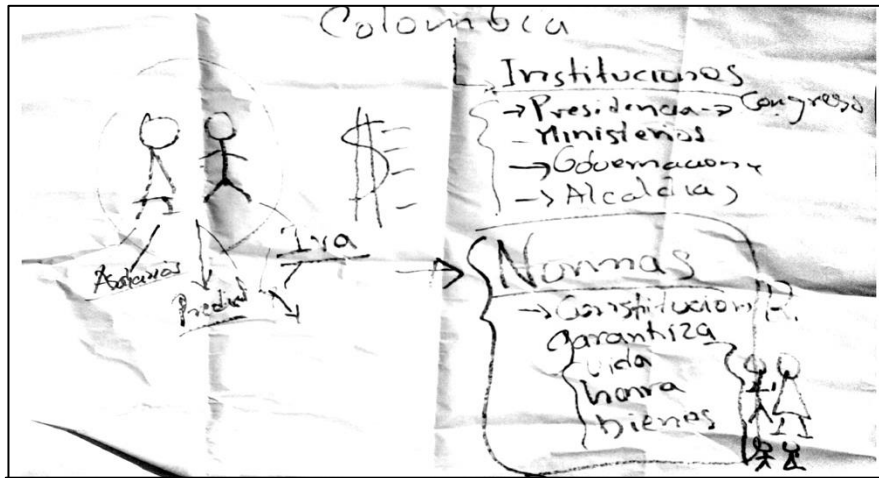 Colombia
Institucionos
→ Presidencia → Congreso
- Ministerios
→ Gobernacion
→ Alcaldias
$
Iva
Predial
→ Normas
→ Constitucion R.
garantiza
vida
honra
bienes